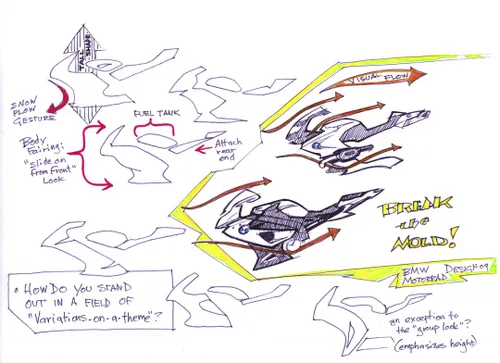 TALL SHAPE
SNOW
PLOW
GESTURE
FUEL TANK
VISUAL FLOW
Body
Fairing:
"slide on
from front"
Look
Attach
rear
end
BREAK
the
MOLD!
BMW DESIGN 09
MOTORRAD
• HOW DO YOU STAND
OUT IN A FIELD OF
"Variations-on-a-theme"?
an exception to
the "group look"?
(emphasizes height)